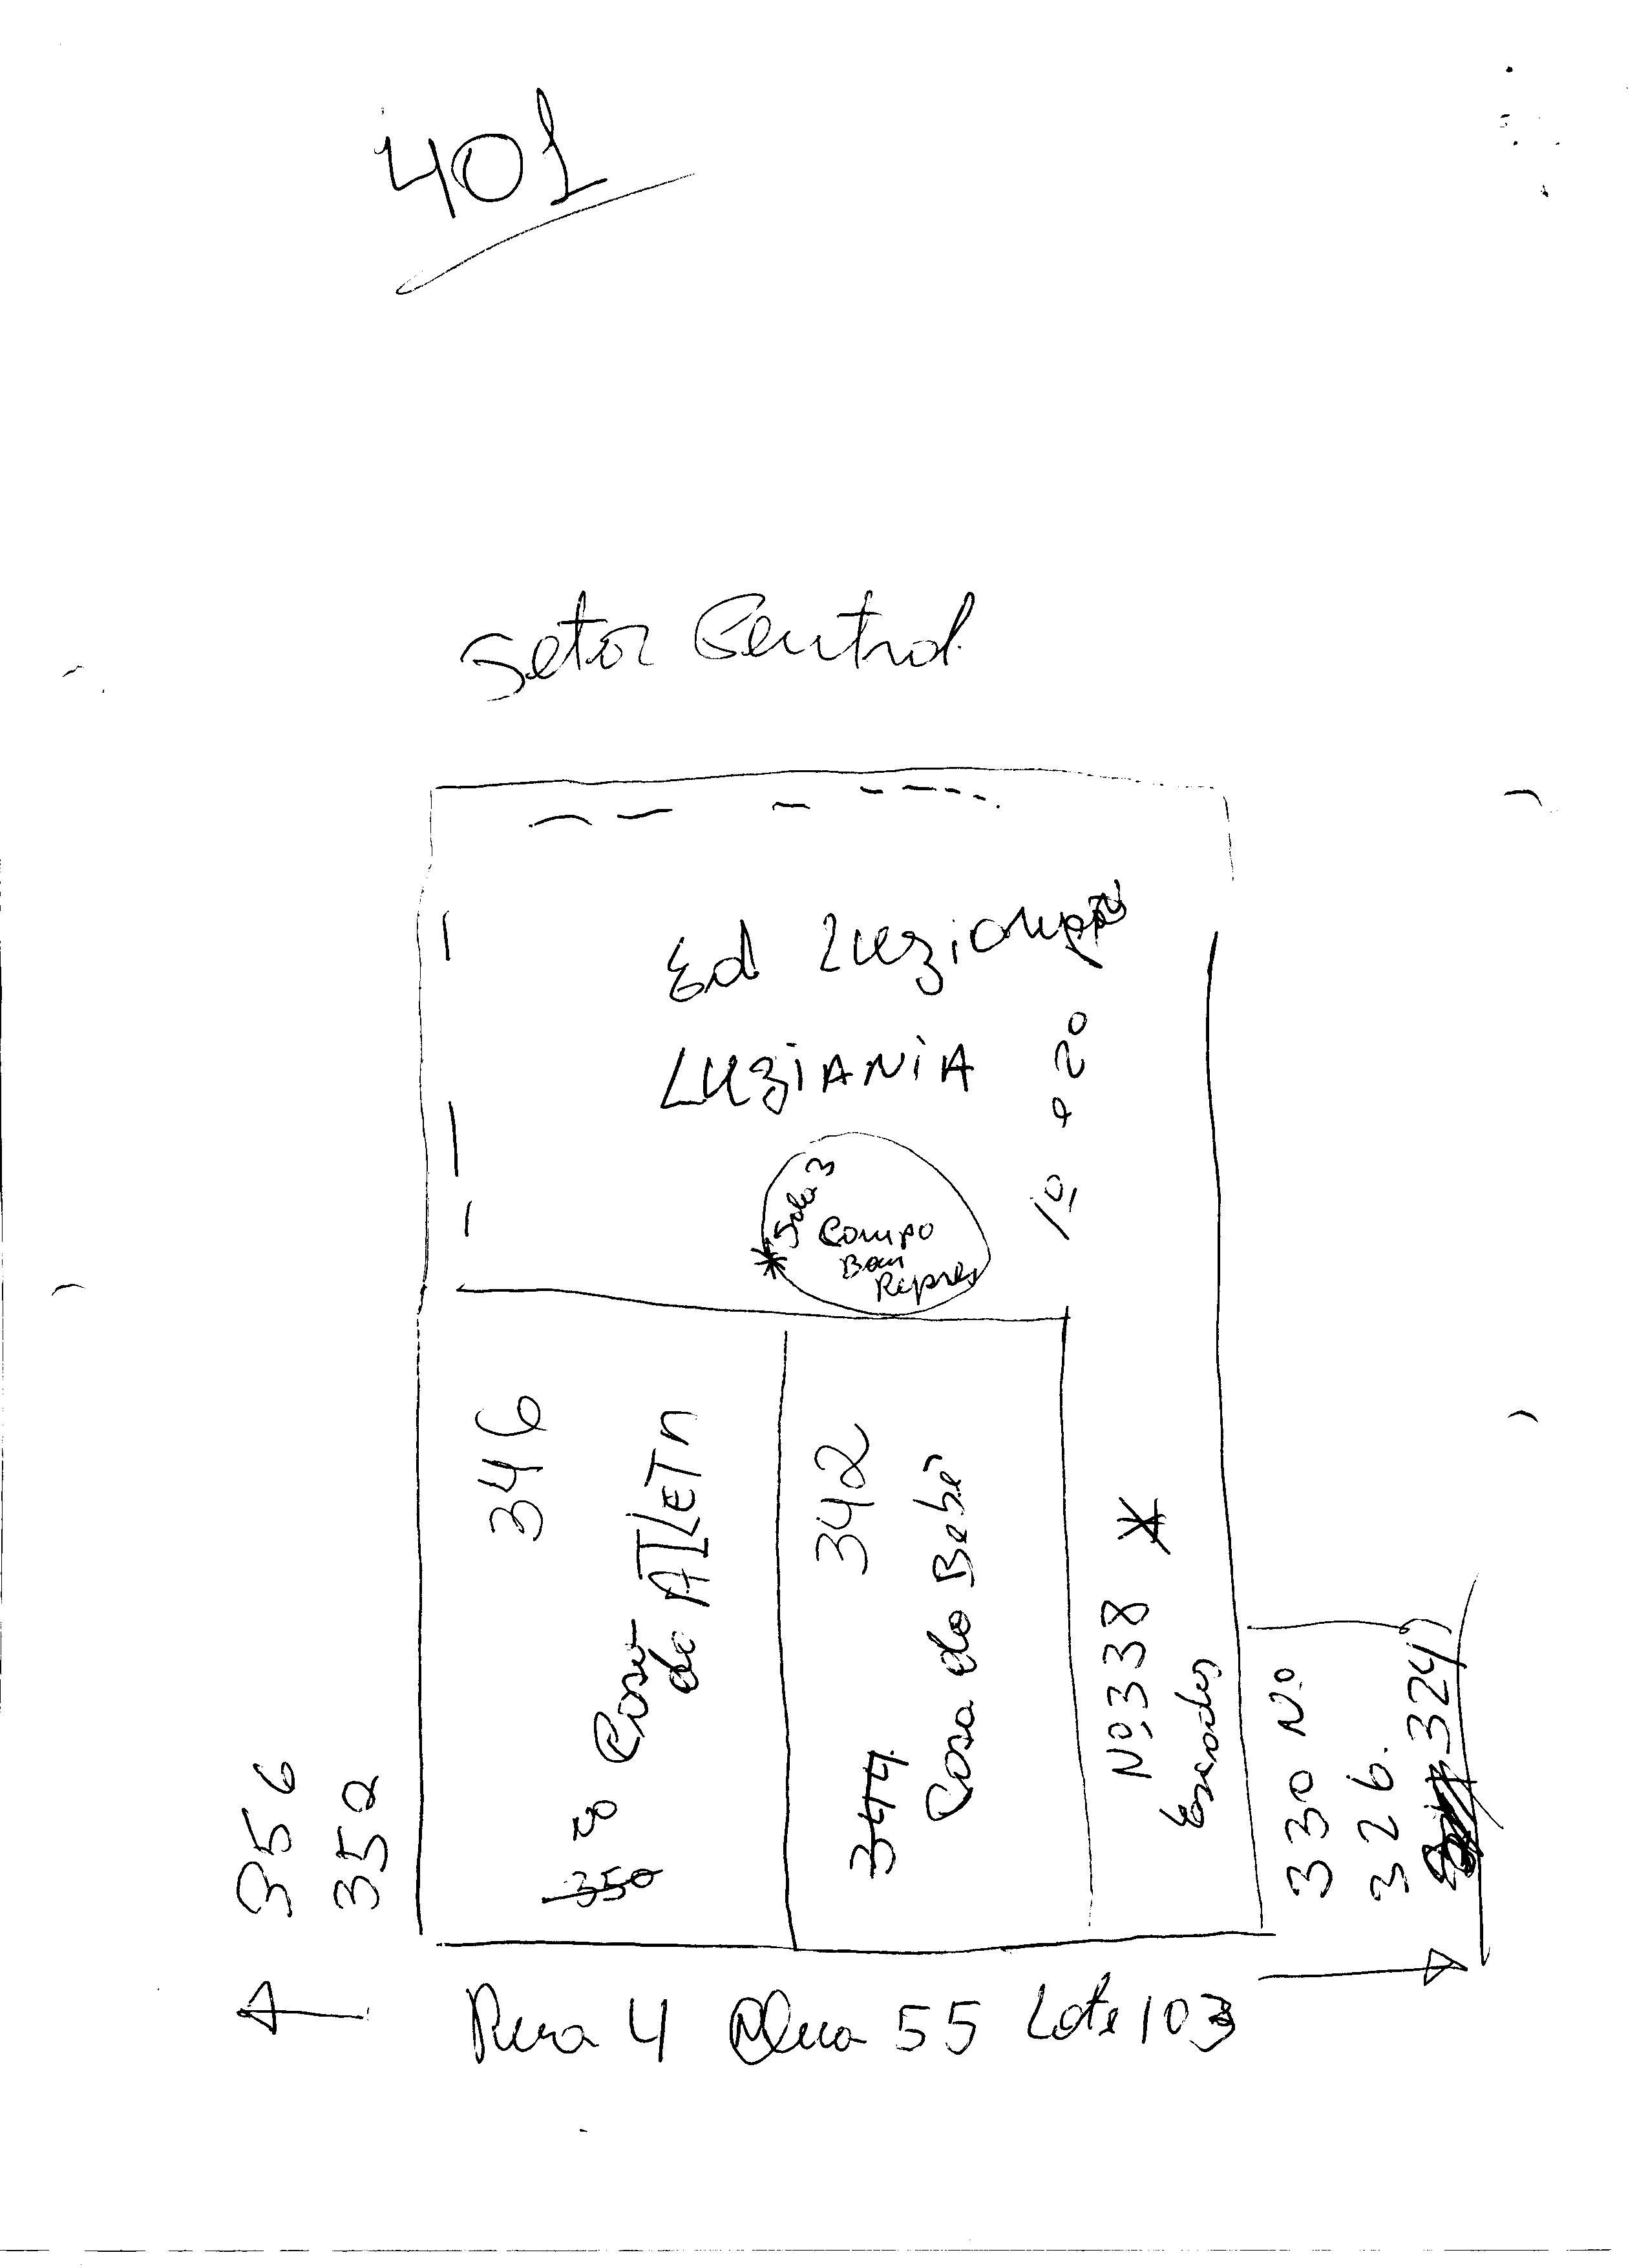 401
Setor Central
Ed Luziania
LUZiANiA
1º e 2º
Sala 3
Campo
Bom
Repres
346
Casa
do ATLETA
350
342
Casa do Bebê
344
Nº 338
Escadas
356
352
330 Nº
326.
324
Rua 4 Qua 55 Lote 103